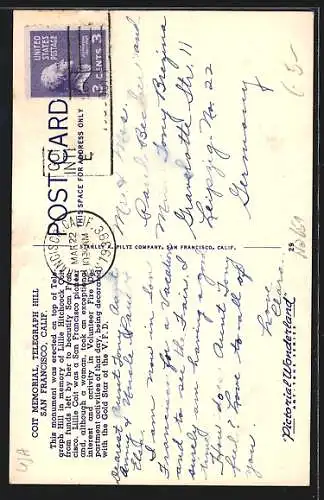 COIT MEMORIAL, TELEGRAPH HILL
SAN FRANCISCO, CALIF.
This monument was erected on top of Tele-
graph Hill in memory of Lillie Hitchcock Coit,
from funds left by her to beautify San Fran-
cisco. Lillie Coit was a San Francisco pioneer
and, although a woman, took an exceptional
interest and activity in Volunteer Fire De-
partment activities of that day, being decorated
with the Gold Star of the V.F.D.
Dearest Aunt Tony, Aunt
Elly and Uncle Paul:
I am now in San
Francisco for a vacation
and to see the Fair. I
surely am having a good
time.
How is Aunt Tony
feel? Love to all of
you
Love
Clara.
Pictorial Wonderland
29
STANLEY A. PILTZ COMPANY, SAN FRANCISCO, CALIF.
POST CARD
THIS SPACE FOR ADDRESS ONLY
UNITED
STATES
POSTAGE
3 CENTS 3
CALIF. 39
MAR 22
1939
Mr & Mrs.
Paul Becker and
Mrs. Tony Bugins
Gravelotte Str. 11
Leipzig No. 22
Germany
USA